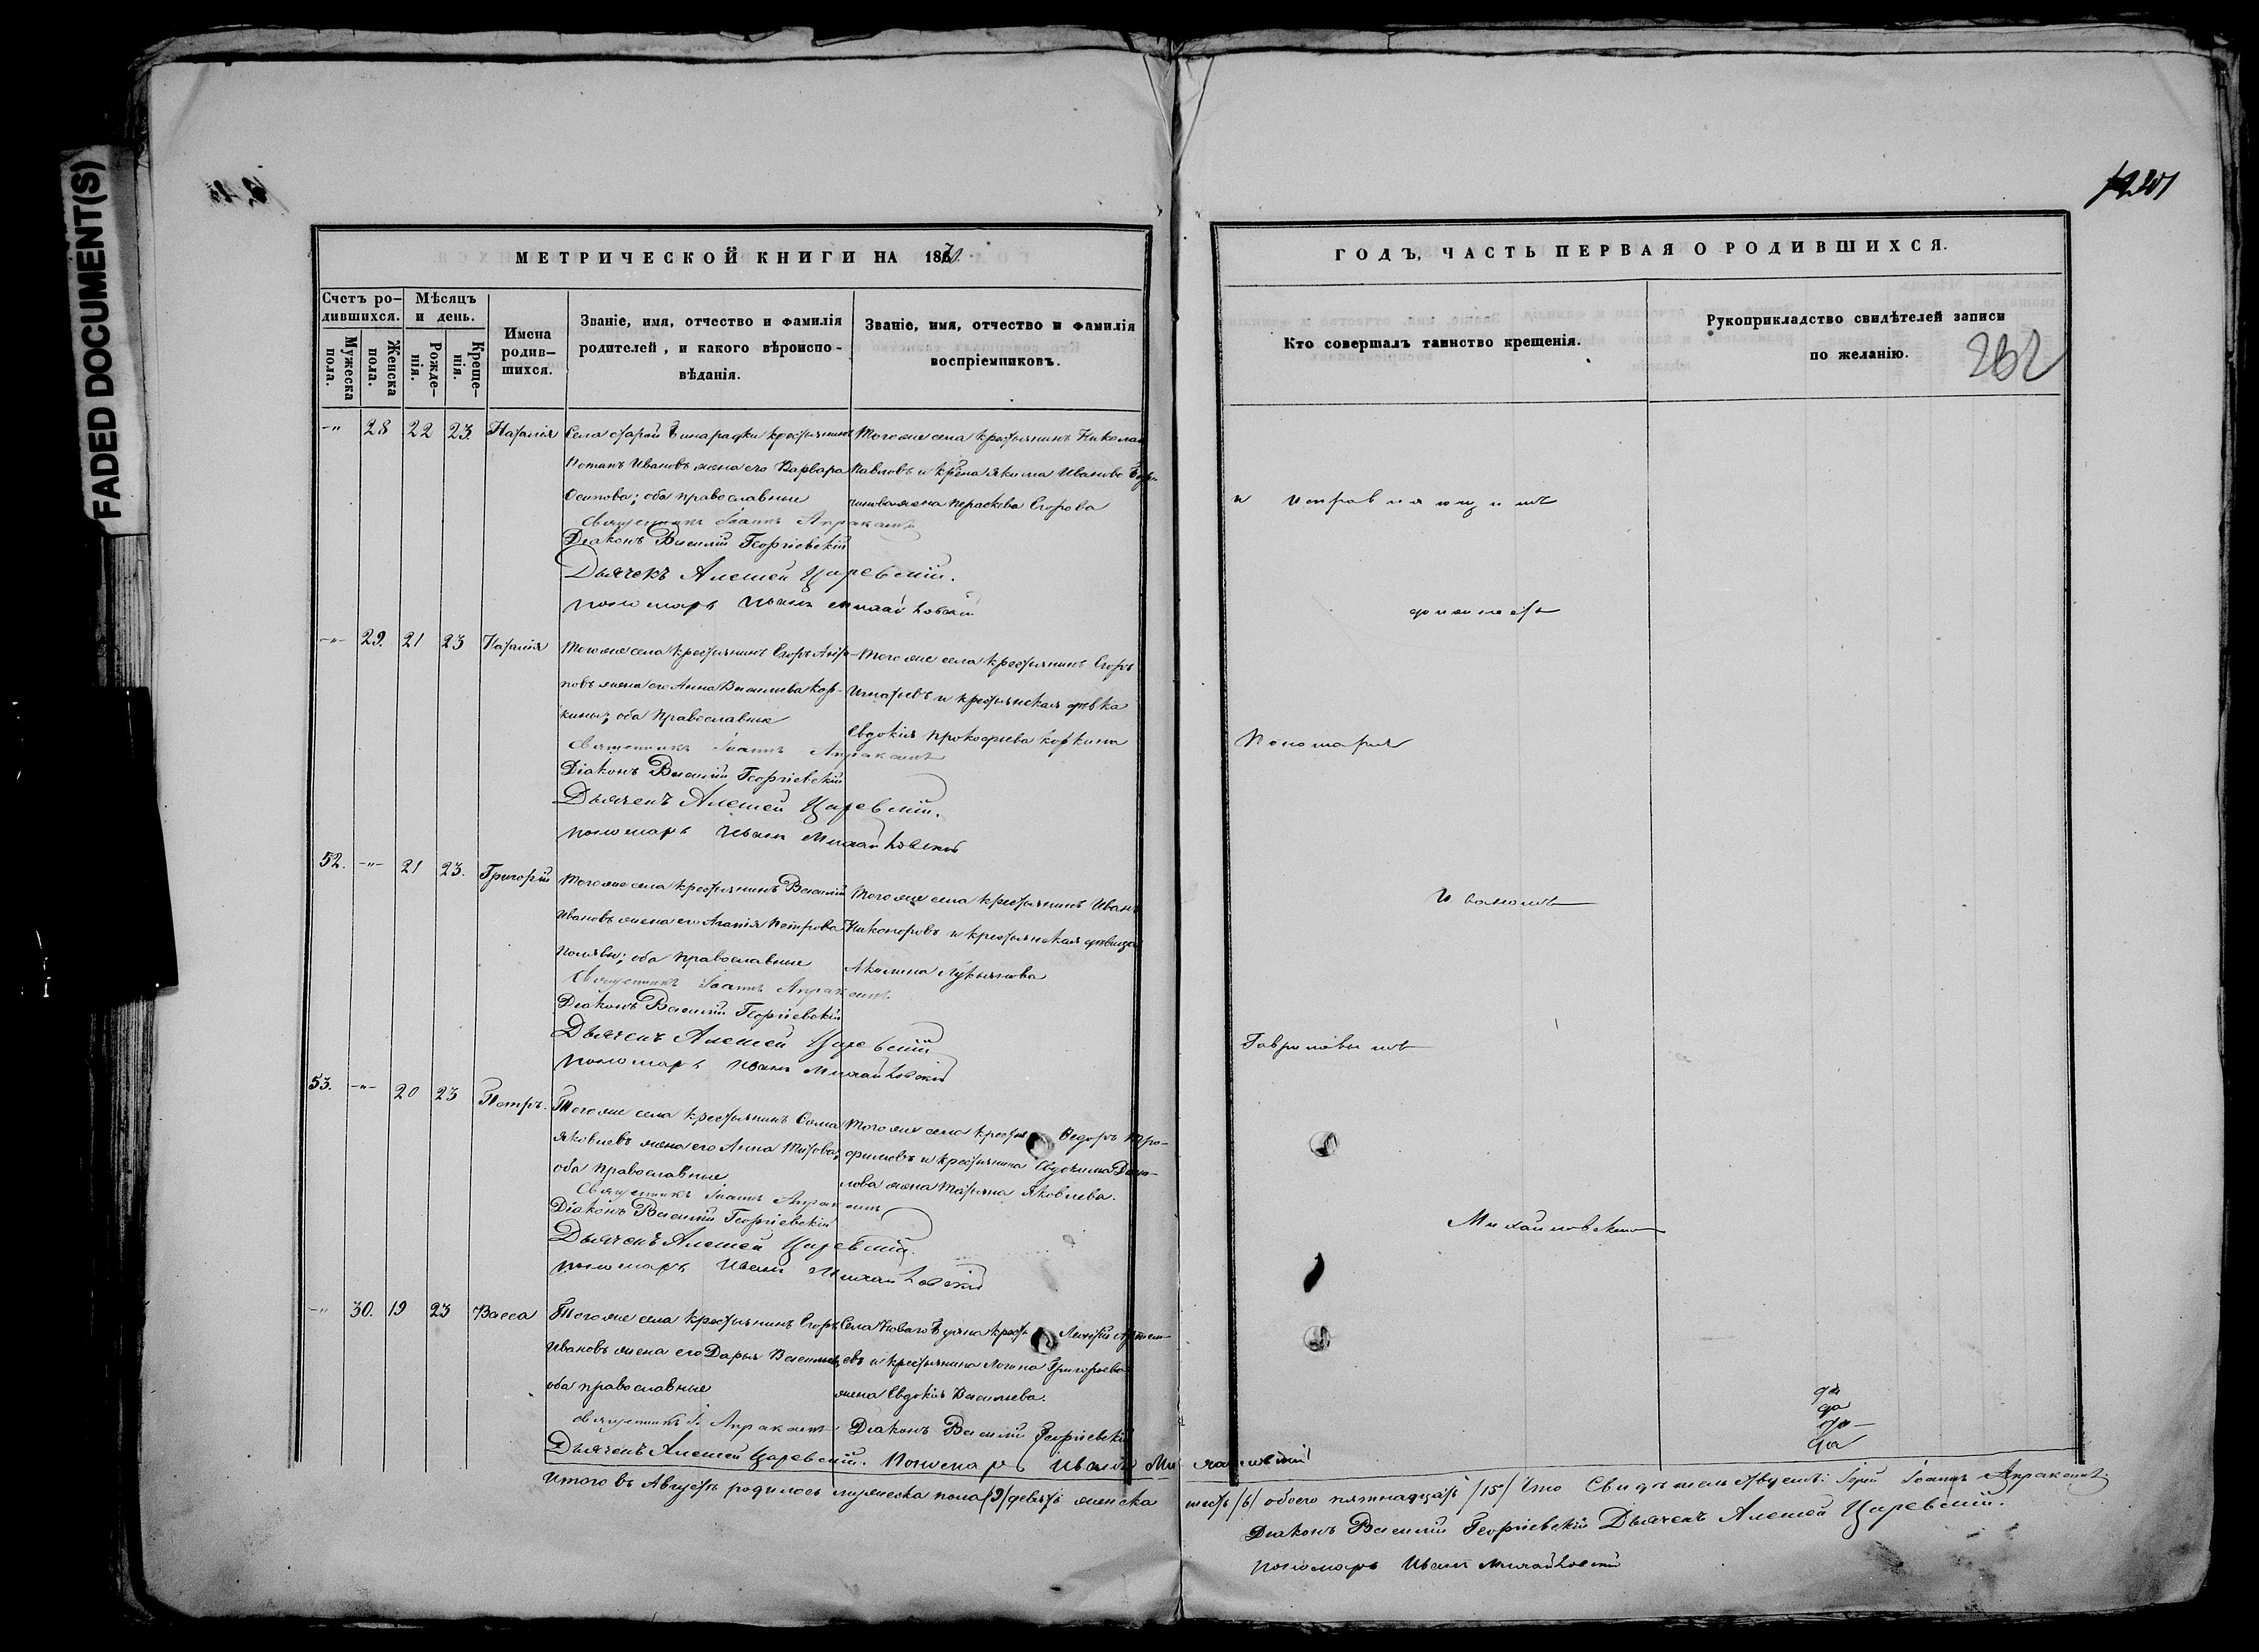 FADED DOCUMENT(S)
МЕТРИЧЕСКОЙ КНИГИ НА 1870.
Счетъ ро-
дившихся.
Мужеска пола.
Женска пола.
Мѣсяцъ
и день.
Рожде-
нія.
Креще-
нія.
Имена
родив-
шихся.
Званіе, имя, отчество и фамилія
родителей, и какого вѣроиспо-
вѣданія.
Званіе, имя, отчество и фамилія
воспріемниковъ.
-"- 28 22 23. Наталія
Села старой крестьянинъ
Потапъ Ивановъ жена его Варвара
Осипова; оба православные
Священникъ Іоаннъ Апраксинъ
Діаконъ Василій Георгіевскій
Дьячекъ Алексей Царевскій.
пономарь Иванъ Михайловскій
Того же села крестьянинъ Николай
Павловъ и Якима Иванова
жена Параскева Егорова
-"- 29. 21 23 Наталія
Того же села крестьянинъ Егоръ
жена его Анна Васильева Кор-
кины; оба православные
Священникъ Іоаннъ Апраксинъ
Діаконъ Василій Георгіевскій
Дьячекъ Алексей Царевскій.
пономарь Иванъ Михайловскій
Того же села крестьянинъ Егоръ
Игнатьевъ и крестьянская дѣвка
Евдокія Прокофьева Коркина
52. -"- 21 23. Григорій
Того же села крестьянинъ Василій
Ивановъ жена его Агапія Петрова
оба православные
Священникъ Іоаннъ Апраксинъ
Діаконъ Василій Георгіевскій
Дьячекъ Алексей Царевскій
пономарь Иванъ Михайловскій
Того же села крестьянинъ Иванъ
Никоноровъ и крестьянская дѣвица
Акилина Лукьянова
53. -"- 20 23 Петръ.
Того же села крестьянинъ Ѳома
Яковлевъ жена его Анна Титова;
оба православные
Священникъ Іоаннъ Апраксинъ
Діаконъ Василій Георгіевскій
Дьячекъ Алексей Царевскій.
пономарь Иванъ Михайловскій
Того же села Ѳедоръ Тро-
фимовъ и крестьянина Евдокима Дани-
лова жена Татьяна Яковлева.
-"- 30. 19 23 Васса
Того же села крестьянинъ Егоръ
Ивановъ жена его Дарья Васильева
оба православные
Священникъ І. Апраксинъ
Села Новаго
евъ и крестьянина Логина Григорьева
жена Евдокія Васильева.
Діаконъ Василій Георгіевскій
Дьячекъ Алексей Царевскій. Пономарь Иванъ Михайловскій
Итого въ Августѣ родилось мужеска пола /9/ девять женска
ГОДЪ, ЧАСТЬ ПЕРВАЯ О РОДИВШИХСЯ.
Кто совершалъ таинство крещенія.
Рукоприкладство свидѣтелей записи
по желанію.
262
и исправляющимъ
должность
Пономаря
Иваномъ
Гавриловымъ
Михайловскимъ
да
да
да
да
шесть /6/ обоего пятнадцать /15/ Что Свидѣтельствуемъ: Іерей Іоаннъ Апраксинъ.
Діаконъ Василій Георгіевскій Дьячекъ Алексей Царевскій.
пономарь Иванъ Михайловскій